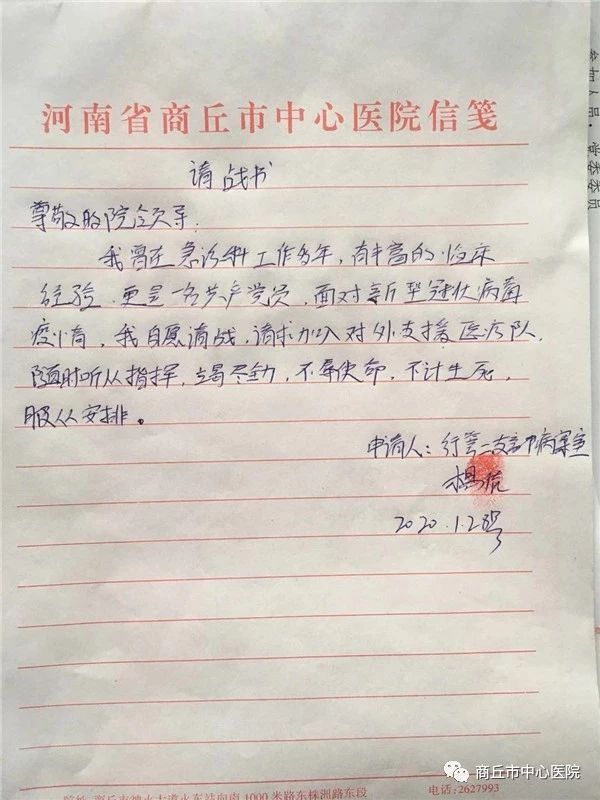 河南省商丘市中心医院信笺
请战书
尊敬的院领导：
我曾在急诊科工作多年，有丰富的临床
经验，更是一名共产党员，面对新型冠状病毒
疫情，我自愿请战，请求加入对外支援医疗队，
随时听从指挥，竭尽全力，不辱使命，不计生死，
服从安排。
申请人：行管二支部病案室
杨
2020.1.28号
参加人员：党委委员
1000米路东株洲路东段
电话：2627993
商丘市中心医院